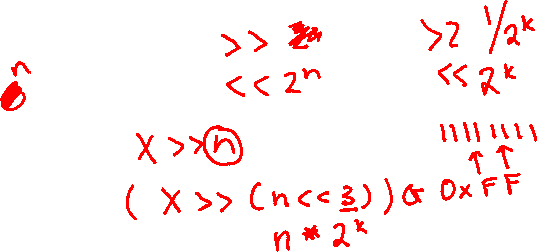 >> >2 1/2^k
n << 2^n << 2^k
X >> n 11111111
( X >> (n << 3)) & 0xFF
n * 2^k